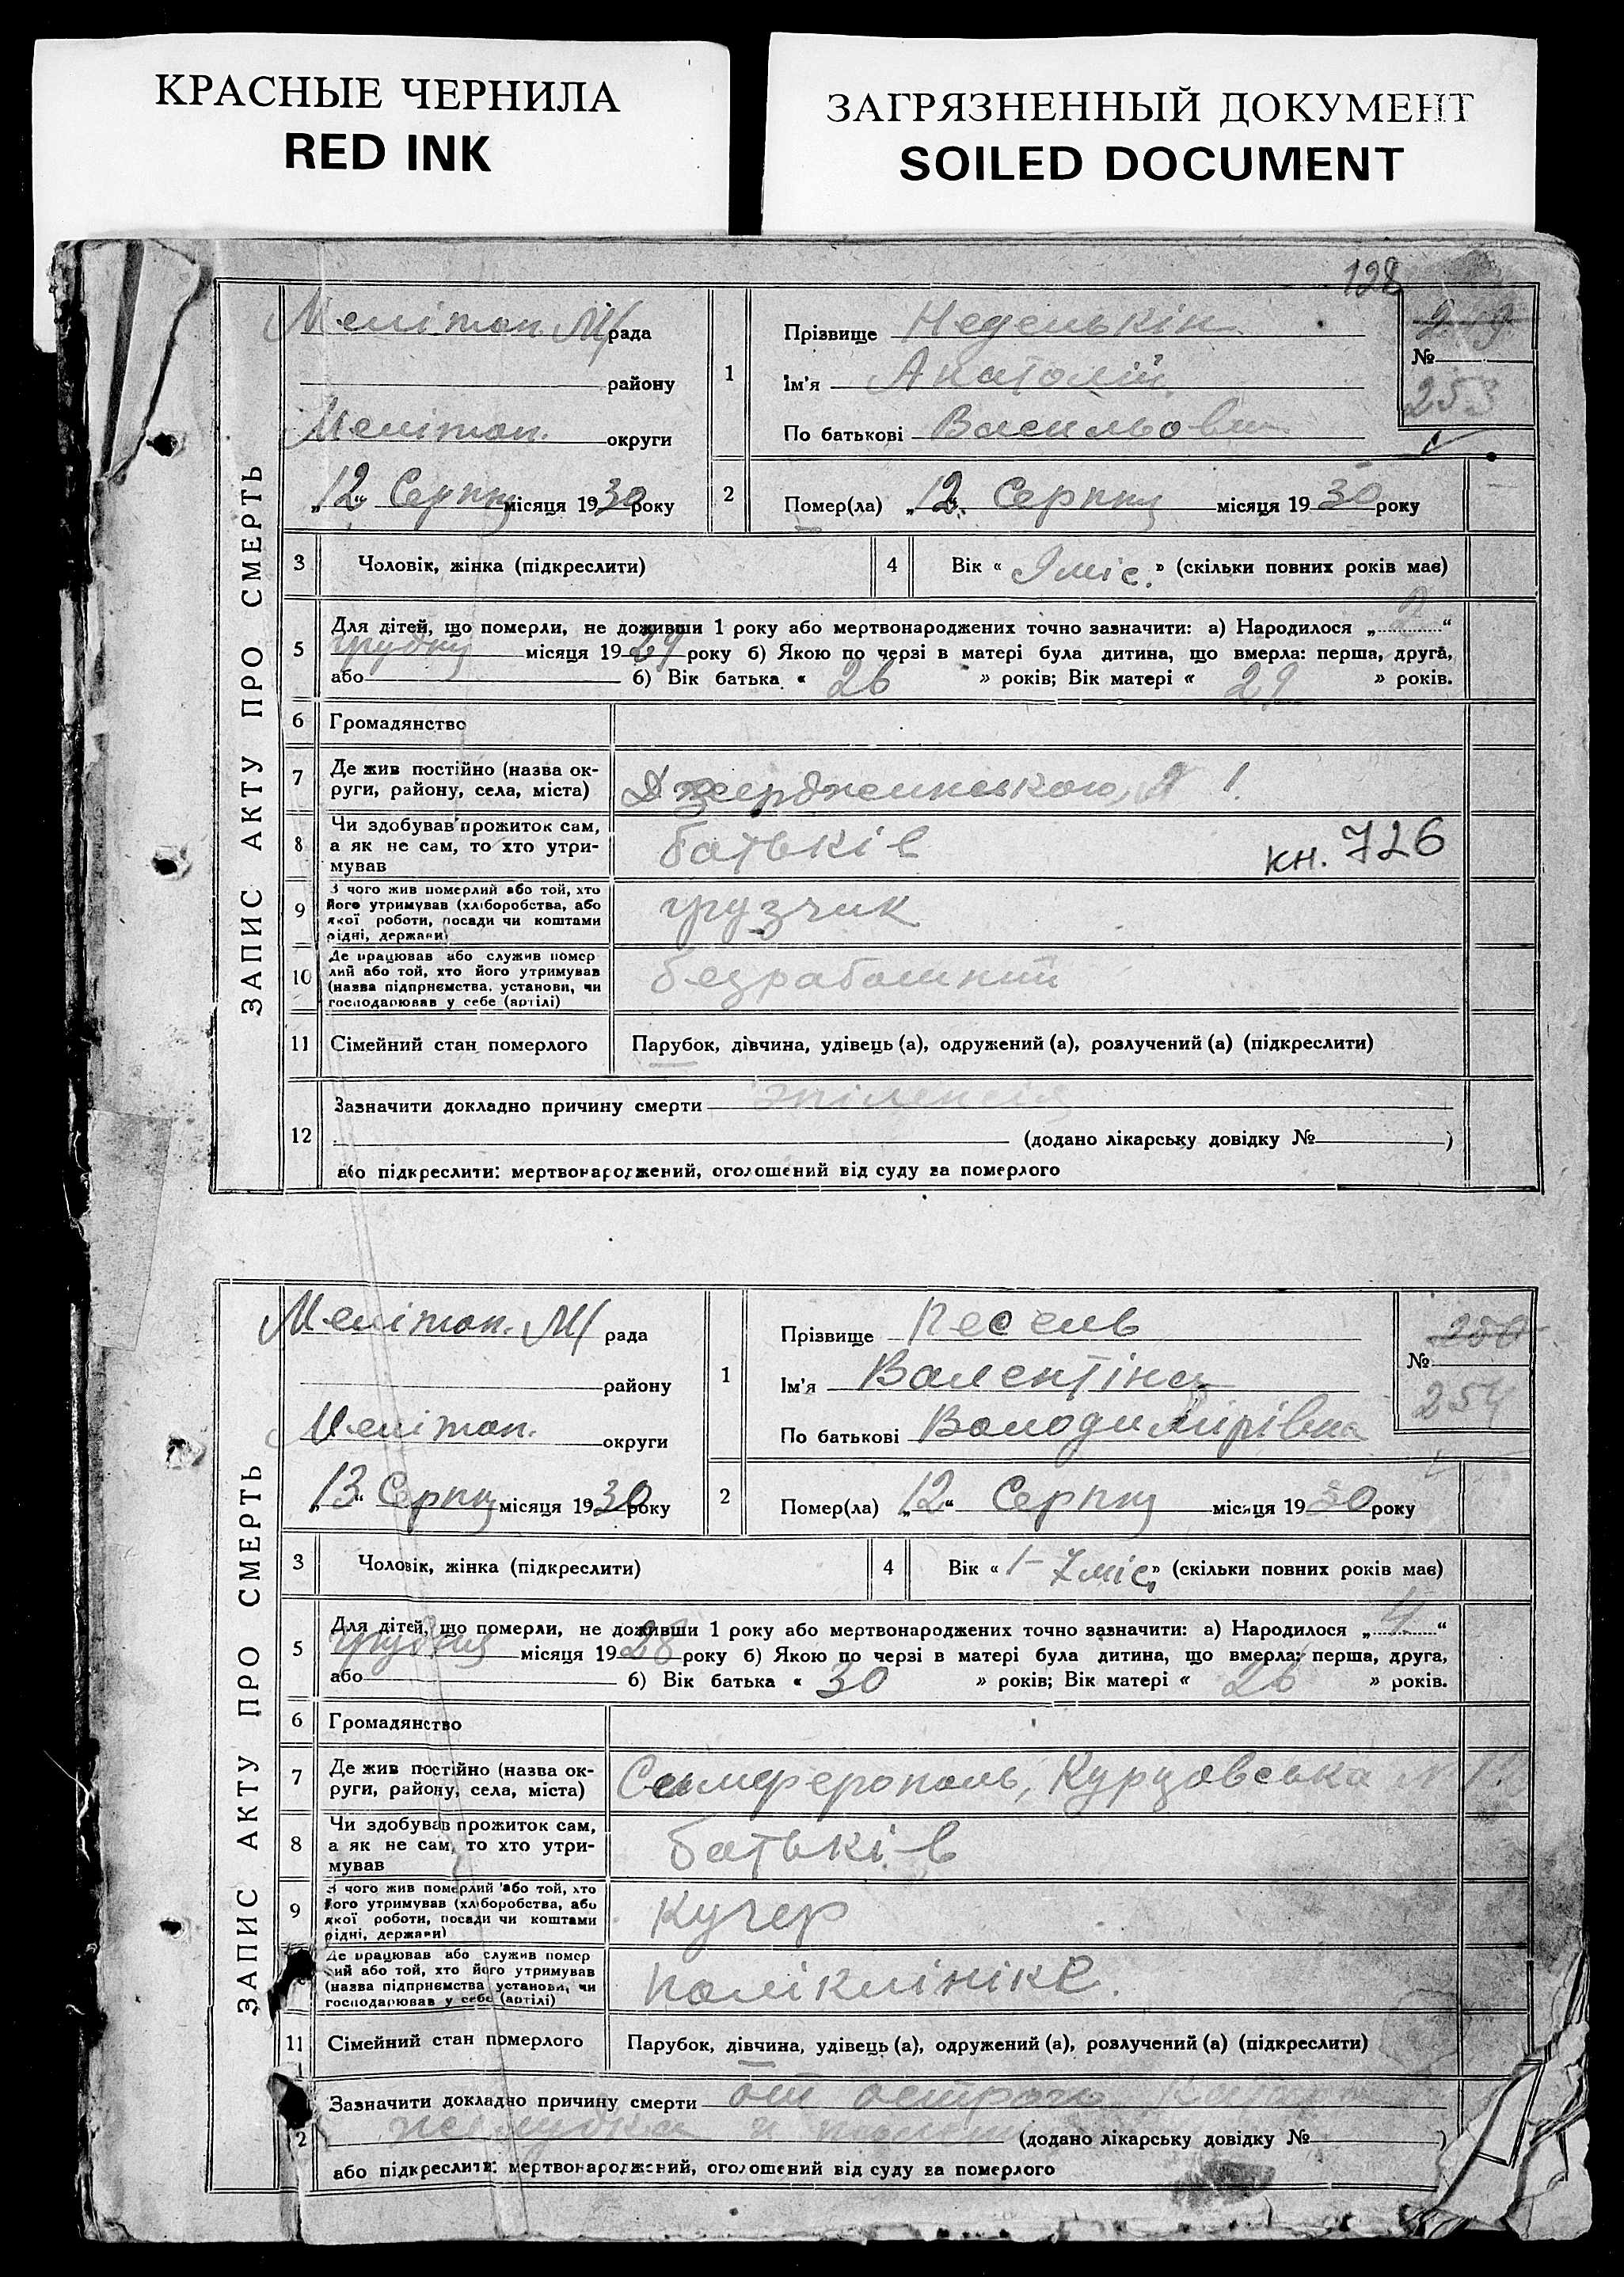 КРАСНЫЕ ЧЕРНИЛА
RED INK
ЗАГРЯЗНЕННЫЙ ДОКУМЕНТ
SOILED DOCUMENT
128
ЗАПИС АКТУ ПРО СМЕРТЬ
Меліпоп. М/рада
району
Меліпоп. округи
„12“ Серпня місяця 1930 року
1
Прізвище Неделькін
Ім'я Анатолій
По батькові Васильович
№
253
2
Помер(ла) „12“ Серпня місяця 1930 року
3
Чоловік, жінка (підкреслити)
4
Вік « 9 міс. » (скільки повних років має)
5
Для дітей, що померли, не доживши 1 року або мертвонароджених точно зазначити: а) Народилося „2“
грудня місяця 1929 року б) Якою по черзі в матері була дитина, що вмерла: перша, друга,
або б) Вік батька « 26 » років; Вік матері « 29 » років.
6
Громадянство
7
Де жив постійно (назва округи, району, села, міста)
1
8
Чи здобував прожиток сам,
а як не сам, то хто утри-
мував
батьків
кн. 726
9
З чого жив померлий або той, хто
його утримував (хліборобства, або
якої роботи, посади чи коштами
рідні, держави)
грузчик
10
Де працював або служив помер
лий або той, хто його утримував
(назва підприємства, установи, чи
господарював у себе (артілі)
безработний
11
Сімейний стан померлого
Парубок, дівчина, удівець (а), одружений (а), розлучений (а) (підкреслити)
12
Зазначити докладно причину смерти эпілепсія
(додано лікарську довідку № )
або підкреслити: мертвонароджений, оголошений від суду за померлого
ЗАПИС АКТУ ПРО СМЕРТЬ
Меліпоп. М/ рада
району
Меліпоп. округи
„13“ Серпня місяця 1930 року
1
Прізвище Песель
Ім'я Валентіна
По батькові Володимирівна
250
№
254
2
Помер(ла) „12“ Серпня місяця 1930 року
3
Чоловік, жінка (підкреслити)
4
Вік « 1 – 7 міс. » (скільки повних років має)
5
Для дітей, що померли, не доживши 1 року або мертвонароджених точно зазначити: а) Народилося „4“
грудня місяця 1928 року б) Якою по черзі в матері була дитина, що вмерла: перша, друга,
або б) Вік батька « 30 » років; Вік матері « 26 » років.
6
Громадянство
7
Де жив постійно (назва ок-
руги, району, села, міста)
Симферополь, Курцовська № 1
8
Чи здобував прожиток сам,
а як не сам, то хто утри-
мував
батьків
9
З чого жив померлий або той, хто
його утримував (хліборобства, або
якої роботи, посади чи коштами
рідні, держави)
Кучер
Де працював або служив помер
ий або той, хто його утримував
(назва підприємства установи, чи
господарював у себе (артілі)
поліклініке.
11
Сімейний стан померлого
Парубок, дівчина, удівець (а), одружений (а), розлучений (а) (підкреслити)
2
Зазначити докладно причину смерти от острого
(додано лікарську довідку № )
або підкреслити: мертвонароджений, оголошений від суду за померлого